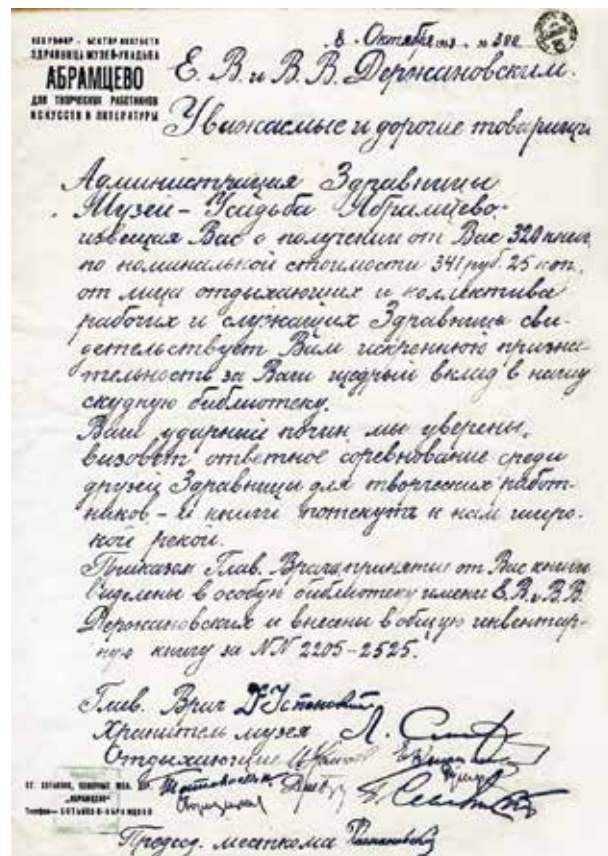 НАРКОМПРОС - СЕКТОР ИСКУССТВ
ЗДРАВНИЦА МУЗЕЙ-УСАДЬБА
АБРАМЦЕВО
ДЛЯ ТВОРЧЕСКИХ РАБОТНИКОВ
ИСКУССТВ И ЛИТЕРАТУРЫ
8 Октября № 380
Е. В. и В. В. Держановским.
Уважаемые и дорогие товарищи
Администрация Здравницы
Музей - Усадьба Абрамцево.
извещая Вас о получении от Вас 320 книг
по номинальной стоимости 341 руб. 25 коп.
от лица отдыхающих и коллектива
рабочих и служащих Здравницы сви-
детельствует Вам искреннюю призна-
тельность за Ваш щедрый вклад в нашу
скудную библиотеку.
Ваш ударный почин, мы уверены,
вызовет ответное соревнование среди
друзей Здравницы для творческих работ-
ников, - и книги потекут к нам широ-
кой рекой.
Приказом Глав. Врача принятые от Вас книги
выделены в особую библиотеку имени Е. В. и В. В.
Держановских и внесены в общую инвентар-
ную книгу за NN 2205-2525.
Глав. Врач
Хранитель музея
Отдыхающие
СТ. ХОТЬКОВО, СЕВЕРНЫХ ЖЕЛ. ДОР.
"АБРАМЦЕВО"
Телефон - ХОТЬКОВО-АБРАМЦЕВО
Председ. месткома